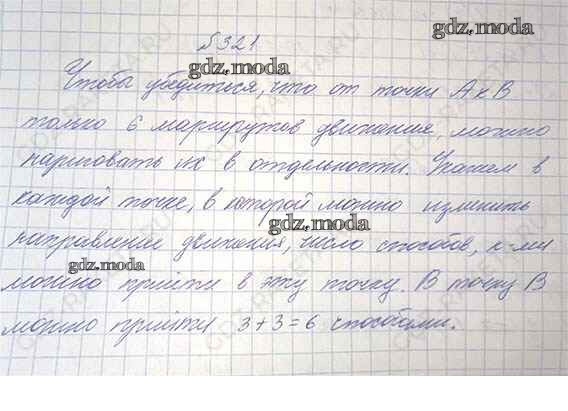 gdz.moda
№321
gdz.moda
Чтобы убедиться, что от точки А к В
только 6 маршрутов движения, можно
нарисовать их в отдельности. Укажем в
каждой точке, в которой можно изменить
gdz.moda
направление движения, число способов, к-ми
gdz.moda
можно прийти в эту точку. В точку В
можно прийти 3+3=6 способами.